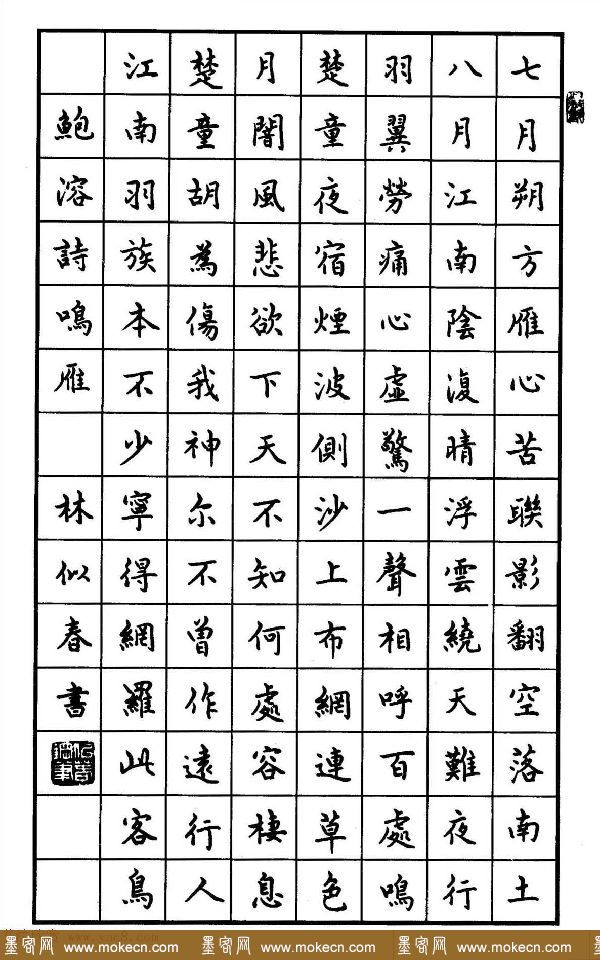 七月朔方雁心苦聯影翻空落南土
八月江南陰復晴浮雲繞天難夜行
羽翼勞痛心虛驚一聲相呼百處鳴
楚童夜宿煙波側沙上布網連草色
月闇風悲欲下天不知何處容棲息
楚童胡為傷我神尔不曾作遠行人
江南羽族本不少寧得網羅此客鳥
鮑溶詩鳴雁 林似春書
墨客网 www.mokecn.com 墨客网 www.mokecn.com 墨客网 www.mokecn.com